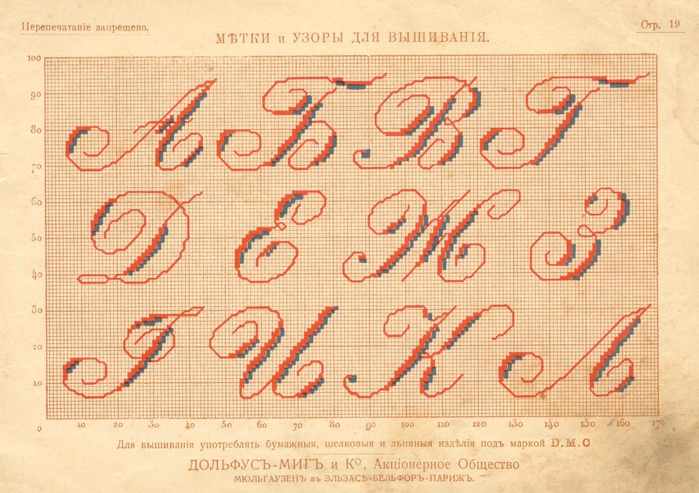 Перепечатаніе запрещено.
Стр. 19
МѢТКИ и УЗОРЫ ДЛЯ ВЫШИВАНІЯ.
100
90
80
70
60
50
40
30
20
10
А Б В Г
Д Е Ж З
І И К Л
0 10 20 30 40 50 60 70 80 90 100 110 120 130 140 150 160 170
Для вышиванія употреблять бумажныя, шелковыя и льняныя издѣлія подъ маркой D.M.C
ДОЛЬФУСЪ-МИГЪ и Кº, Акціонерное Общество
МЮЛЬГАУЗЕНЪ въ ЭЛЬЗАСѢ-БЕЛЬФОРЪ-ПАРИЖЪ.